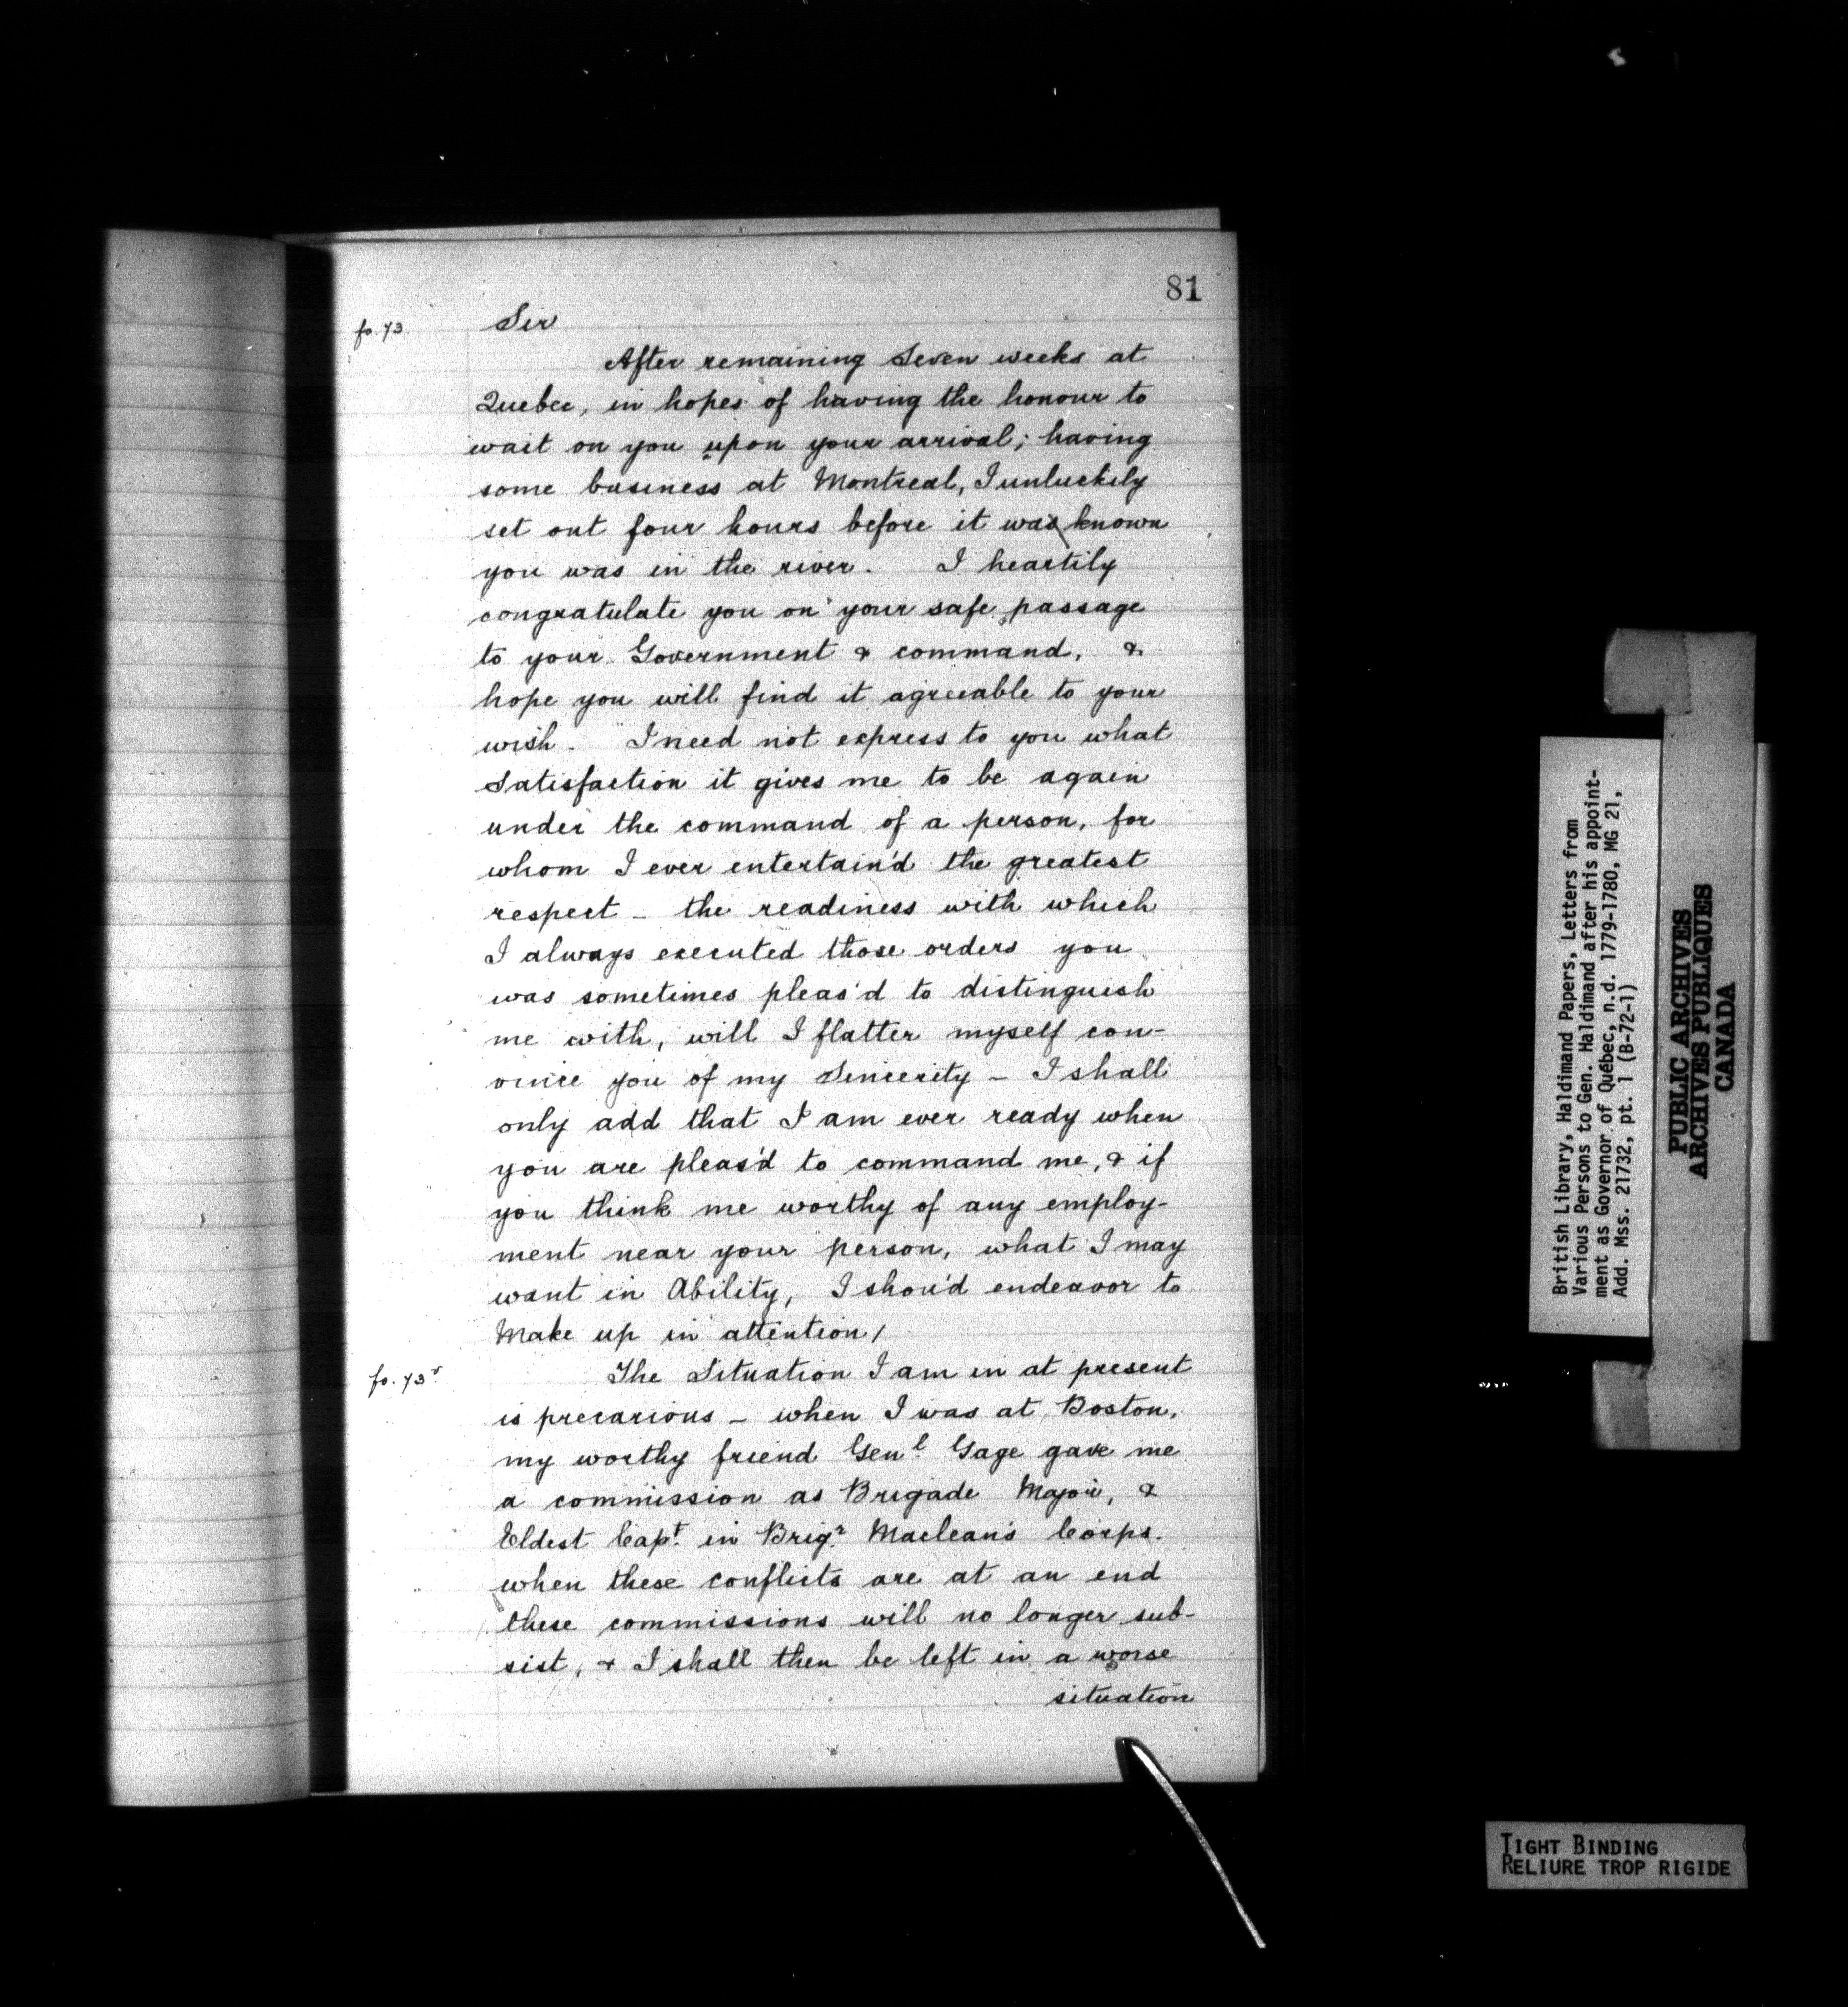 81
fo. 73
Sir
After remaining Seven weeks at
Quebec, in hopes of having the honour to
wait on you upon your arrival; having
some business at Montreal, I unluckily
set out four hours before it was known
you was in the river. I heartily
congratulate you on your safe passage
to your Government & command, &
hope you will find it agreeable to your
wish. I need not express to you what
Satisfaction it gives me to be again
under the command of a person, for
whom I ever entertain'd the greatest
respect - the readiness with which
I always executed those orders you
was sometimes pleas'd to distinguish
me with, will I flatter myself con-
vince you of my Sincerity - I shall
only add that I am ever ready when
you are pleas'd to command me, & if
you think me worthy of any employ-
ment near your person, what I may
want in Ability, I shou'd endeavor to
Make up in attention/
fo. 73v
The Situation I am in at present
is precarious - when I was at Boston,
my worthy friend Genl. Gage gave me
a commission as Brigade Major, &
Eldest Capt. in Brigr. Maclean's Corps.
when these conflicts are at an end
these commissions will no longer sub-
sist, & I shall then be left in a worse
situation
British Library, Haldimand Papers, Letters from
Various Persons to Gen. Haldimand after his appoint-
ment as Governor of Québec, n.d. 1779-1780, MG 21,
Add. Mss. 21732, pt. 1 (B-72-1)
PUBLIC ARCHIVES
ARCHIVES PUBLIQUES
CANADA
TIGHT BINDING
RELIURE TROP RIGIDE